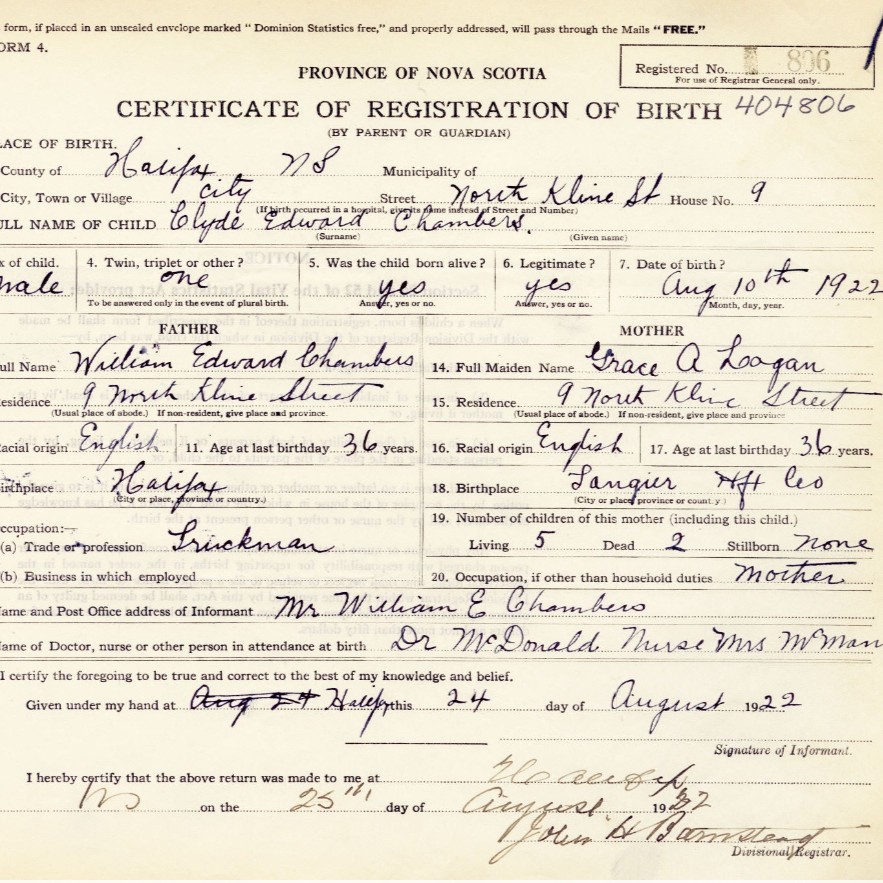 form, if placed in an unsealed envelope marked "Dominion Statistics free," and properly addressed, will pass through the Mails "FREE."
ORM 4.
Registered No. 806
For use of Registrar General only.
PROVINCE OF NOVA SCOTIA
CERTIFICATE OF REGISTRATION OF BIRTH 404806
(BY PARENT OR GUARDIAN)
LACE OF BIRTH.
County of Halifax NS Municipality of
City, Town or Village City Street North Kline St House No. 9
(If birth occurred in a hospital, give its name instead of Street and Number)
ULL NAME OF CHILD Clyde Edward Chambers.
(Surname) (Given name)
x of child. 4. Twin, triplet or other? 5. Was the child born alive? 6. Legitimate? 7. Date of birth?
male one yes yes Aug 10th 1922
To be answered only in the event of plural birth. Answer, yes or no. Answer, yes or no. Month, day, year.
FATHER MOTHER
ull Name William Edward Chambers 14. Full Maiden Name Grace A Logan
Residence 9 North Kline Street 15. Residence 9 North Kline Street
(Usual place of abode.) If non-resident, give place and province. (Usual place of abode.) If non-resident, give place and province
Racial origin English 11. Age at last birthday 36 years. 16. Racial origin English 17. Age at last birthday 36 years.
Birthplace Halifax 18. Birthplace Tangier Hfx Co
(City or place, province or country.) (City or place, province or country)
ccupation: 19. Number of children of this mother (including this child.)
(a) Trade or profession Truckman Living 5 Dead 2 Stillborn None
(b) Business in which employed 20. Occupation, if other than household duties Mother
Name and Post Office address of Informant Mr William E Chambers
Name of Doctor, nurse or other person in attendance at birth Dr McDonald Nurse Mrs McMan
I certify the foregoing to be true and correct to the best of my knowledge and belief.
Given under my hand at Aug 24 Halifax this 24 day of August 1922
Signature of Informant.
I hereby certify that the above return was made to me at Halifax
NS on the 25th day of August 1922
John H Barnstead
Divisional Registrar.